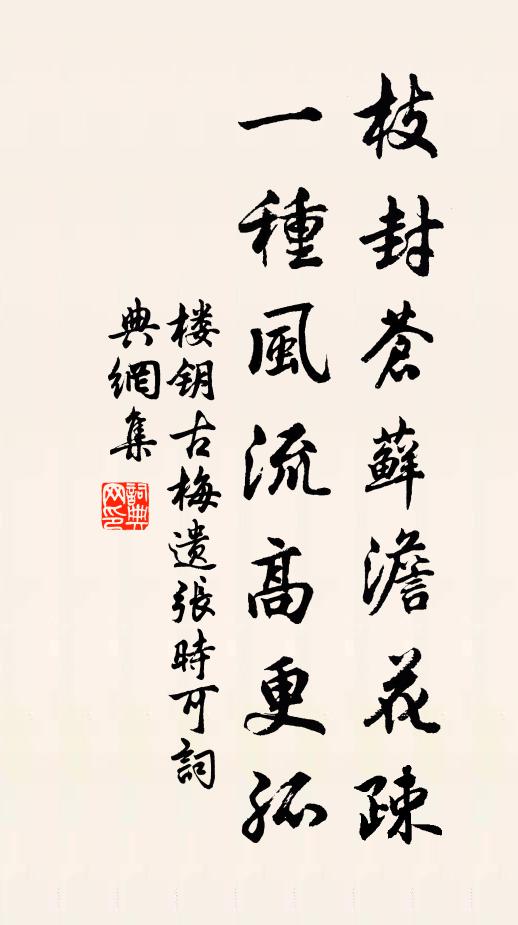 枝封蒼蘚澹花疎
一種風流高更孤
楼钥古梅遗張時可詞
典網集
詞典网印